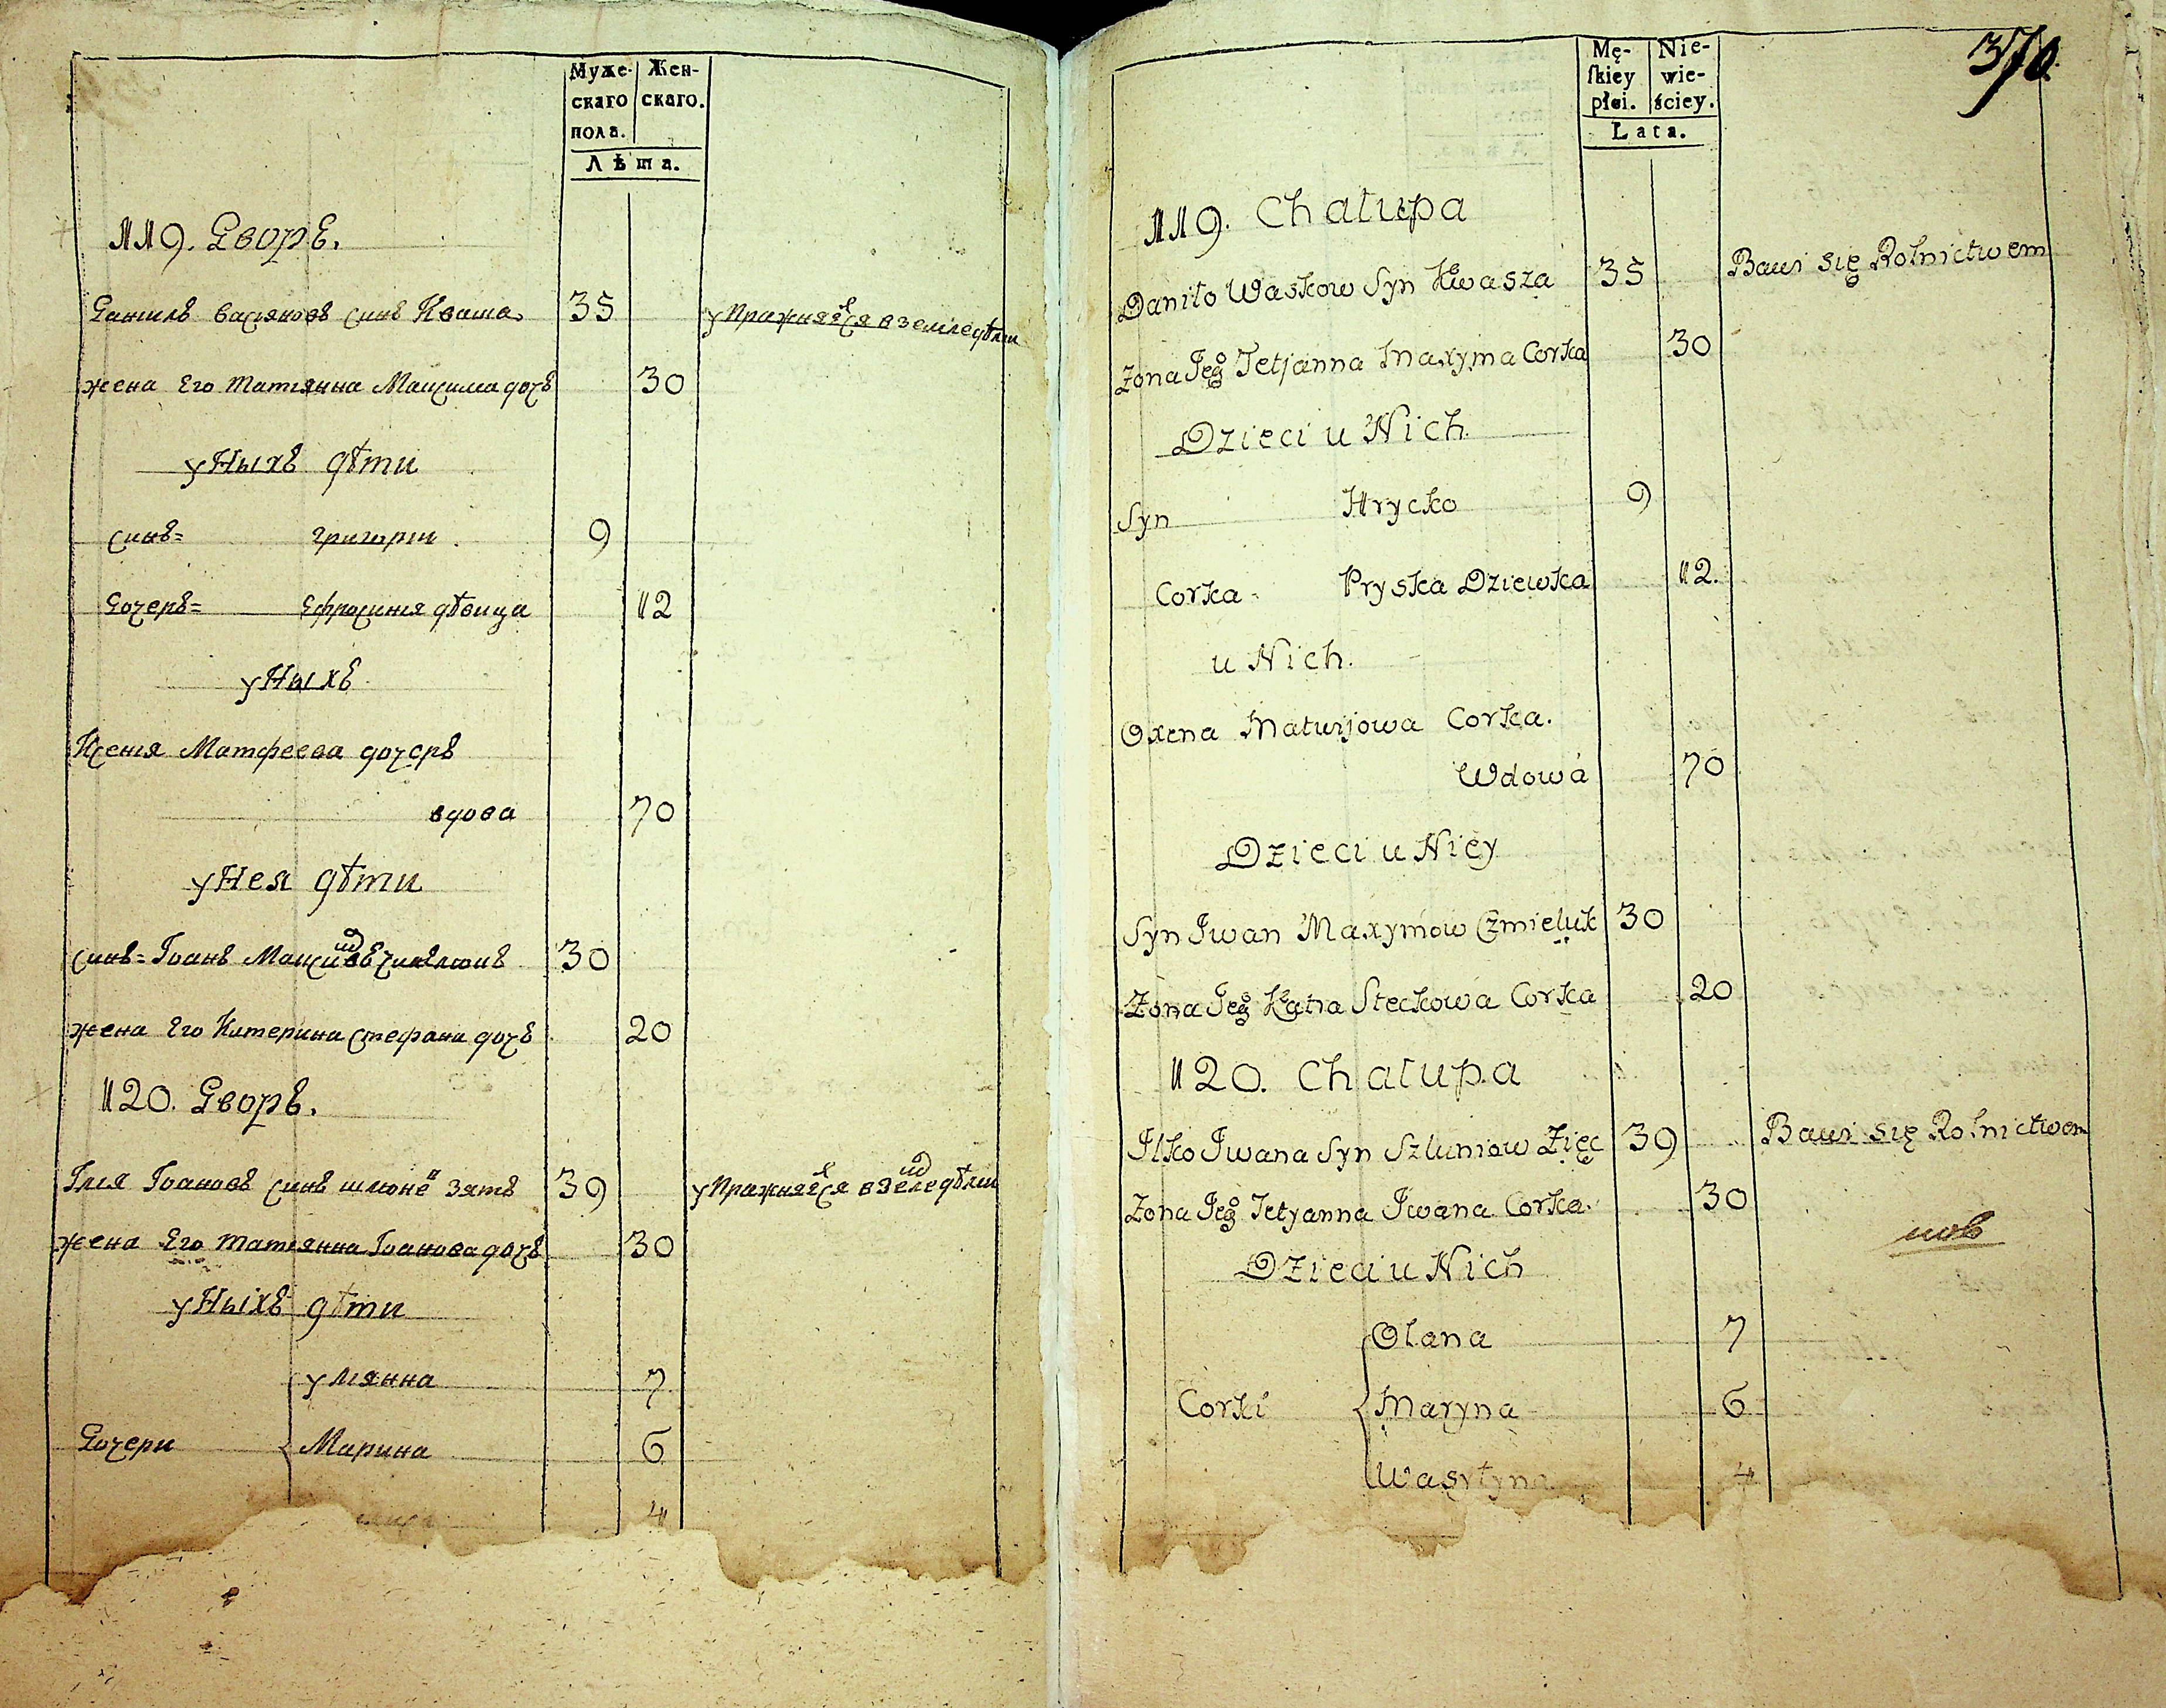 Муже- Жен-
скаго скаго.
пола.
Лѣта.
119. Дворъ.
Данилъ васіяновъ синъ Кваша 35 упражняется в земледѣліи
жена Его татіянна Максима дочъ 30
у Ныхъ дѣти
синъ= григорій 9
Дочеръ= Ефросинія дѣвица 12
у Ныхъ
Ксенія Матфеева дочеръ
вдова 70
у Нея дѣти
синъ= Іоанъ 30
жена Его Катерина стефана дочъ 20
120. Дворъ.
Ілія Іоановъ синъ зять 39 упражняется в земледѣліи
жена Его татіянна Іоанова дочъ 30
у Ныхъ дѣти
уліянна 7
Дочери { Марина 6
4
370.
Mę- Nie-
skiey wie-
płci. ściey.
Lata.
119. Chałupa
Daniło Waskow Syn Kwasza 35 Bawi się Rolnictwem
Zona Jego Tetjanna Maxyma Corka 30
Dzieci u Nich
Syn Hrycko 9
Corka Pryska Dziewka 12.
u Nich.
Oxena Matwijowa Corka.
Wdowa 70
Dzieci u Niey
Syn Jwan Maxymow Czmieluk 30
Zona Jego Katra Steckowa Corka 20
120. Chałupa
Jlko Jwana Syn Szluniow Zięc 39 Bawi się Rolnictwem
Zona Jego Tetyanna Jwana Corka. 30
Dzieci u Nich
Olana 7
Corki { Maryna 6
Wasyłyna 4